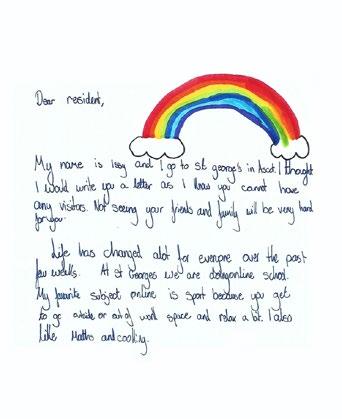 Dear resident,
My name is Issy and I go to st george's in Ascot. I thought
I would write you a letter as I know you cannot have
any visitors. Not seeing your friends and family will be very hard
for you.
Life has changed alot for everyone over the past
few weeks. At st Georges we are doing online school.
My favourite subject online is sport because you get
to go outside or out of work space and relax a bit. I also
like Maths and cooking.